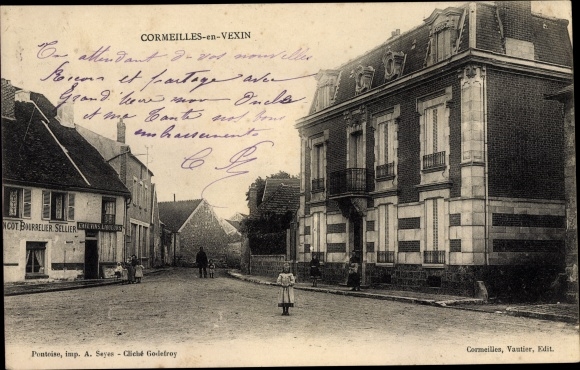 CORMEILLES-en-VEXIN
En attendant de vos nouvelles
Reçois et partage avec
Grand'mère mon Oncle
et ma Tante nos bons
embrassements
BOURRELIER.SELLIER
Pontoise, imp. A. Seyes - Cliché Godefroy
Cormeilles, Vautier, Edit.